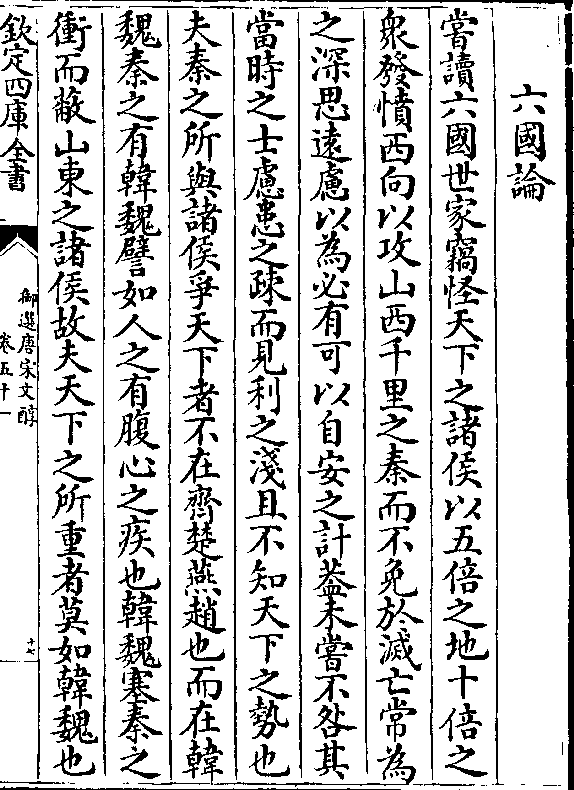 六國論
嘗讀六國世家竊怪天下之諸侯以五倍之地十倍之
衆發憤西向以攻山西千里之秦而不免於滅亡常為
之深思遠慮以為必有可以自安之計葢未嘗不咎其
當時之士慮患之疎而見利之淺且不知天下之勢也
夫秦之所與諸侯爭天下者不在齊楚燕趙也而在韓
魏秦之有韓魏譬如人之有腹心之疾也韓魏塞秦之
衝而蔽山東之諸侯故夫天下之所重者莫如韓魏也
欽定四庫全書
御選唐宋文醇
卷五十一
十七